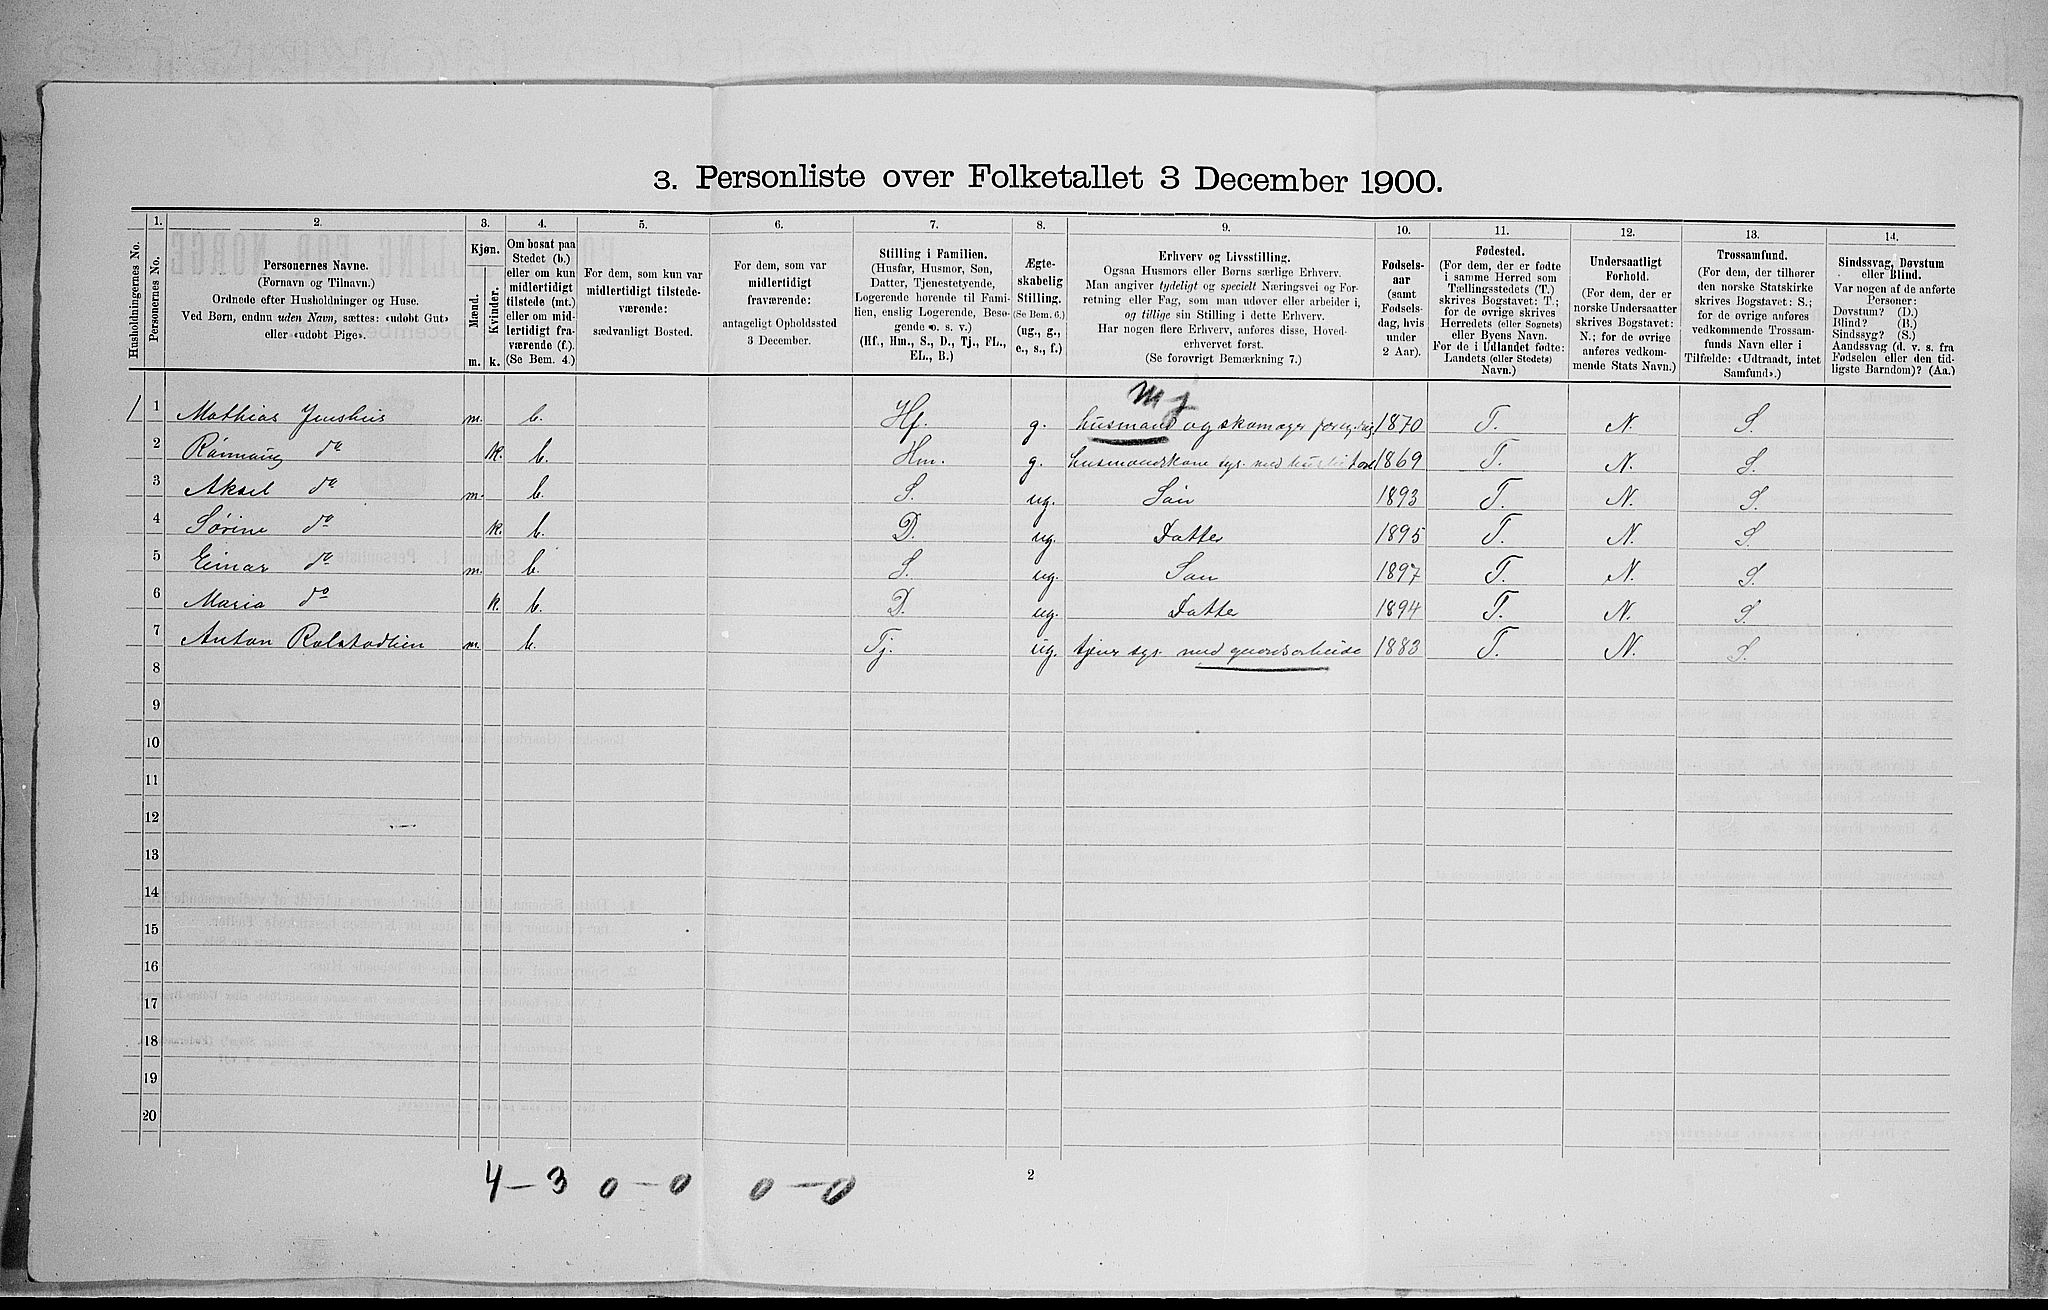 3. Personliste over Folketallet 3 December 1900.
Husholdningernes No.
1.
Personernes No.
2.
Personernes Navne.
(Fornavn og Tilnavn.)
Ordnede efter Husholdninger og Huse.
Ved Børn, endnu uden Navn, sættes: «udøbt Gut»
eller «udøbt Pige».
3.
Kjøn.
Mænd.
Kvinder.
m. k.
4.
Om bosat paa
Stedet (b.)
eller om kun
midlertidigt
tilstede (mt.)
eller om mid-
lertidigt fra-
værende (f.).
(Se Bem. 4.)
5.
For dem, som kun var
midlertidigt tilstede-
værende:
sædvanligt Bosted.
6.
For dem, som var
midlertidigt
fraværende:
antageligt Opholdssted
3 December.
7.
Stilling i Familien.
(Husfar, Husmor, Søn,
Datter, Tjenestetyende,
Logerende hørende til Fami-
lien, enslig Logerende, Besø-
gende o. s. v.)
(Hf., Hm., S., D., Tj., FL.,
EL., B.)
8.
Ægte-
skabelig
Stilling.
(Se Bem. 6.)
(ug., g.,
e., s., f.)
9.
Erhverv og Livsstilling.
Ogsaa Husmors eller Børns særlige Erhverv.
Man angiver tydeligt og specielt Næringsvei og For-
retning eller Fag, som man udøver eller arbeider i,
og tillige sin Stilling i dette Erhverv.
Har nogen flere Erhverv, anføres disse, Hoved-
erhvervet først.
(Se forøvrigt Bemærkning 7.)
10.
Fødsels-
aar
(samt
Fødsels-
dag, hvis
under
2 Aar).
11.
Fødested.
(For dem, der er fødte
i samme Herred som
Tællingsstedets (T.)
skrives Bogstavet: T.;
for de øvrige skrives
Herredets (eller Sognets)
eller Byens Navn.
For de i Udlandet fødte:
Landets (eller Stedets)
Navn.)
12.
Undersaatligt
Forhold.
(For dem, der er
norske Undersaatter
skrives Bogstavet:
N.; for de øvrige
anføres vedkom-
mende Stats Navn.)
13.
Trossamfund.
(For dem, der tilhører
den norske Statskirke
skrives Bogstavet: S.;
for de øvrige anføres
vedkommende Trossam-
funds Navn eller i
Tilfælde: «Udtraadt, intet
Samfund».)
14.
Sindssvag, Døvstum
eller Blind.
Var nogen af de anførte
Personer:
Døvstum? (D.)
Blind? (B.)
Sindssyg? (S.)
Aandssvag (d. v. s. fra
Fødselen eller den tid-
ligste Barndom)? (Aa.)
1 Mathias Jenshus m. b. Hf. g. husmand og skomager 1870 T. N. S.
2 do k. b. Hm. g. husmandskone sys. med 1869 T. N. S.
3 Aksel do m. b. S. ug. Søn 1893 T. N. S.
4 Sørine do k. b. D. ug. Datter 1895 T. N. S.
5 Einar do m. b. S. ug. Søn 1897 T. N. S.
6 Maria do k. b. D. ug. Datter 1894 T. N. S.
7 Anton Rolstadlien m. b. Tj. ug. tjener sys. med gaardsarbeide 1883 T. N. S.
8
9
10
11
12
13
14
15
16
17
18
19
20
4 – 3 0 – 0 0 – 0
2